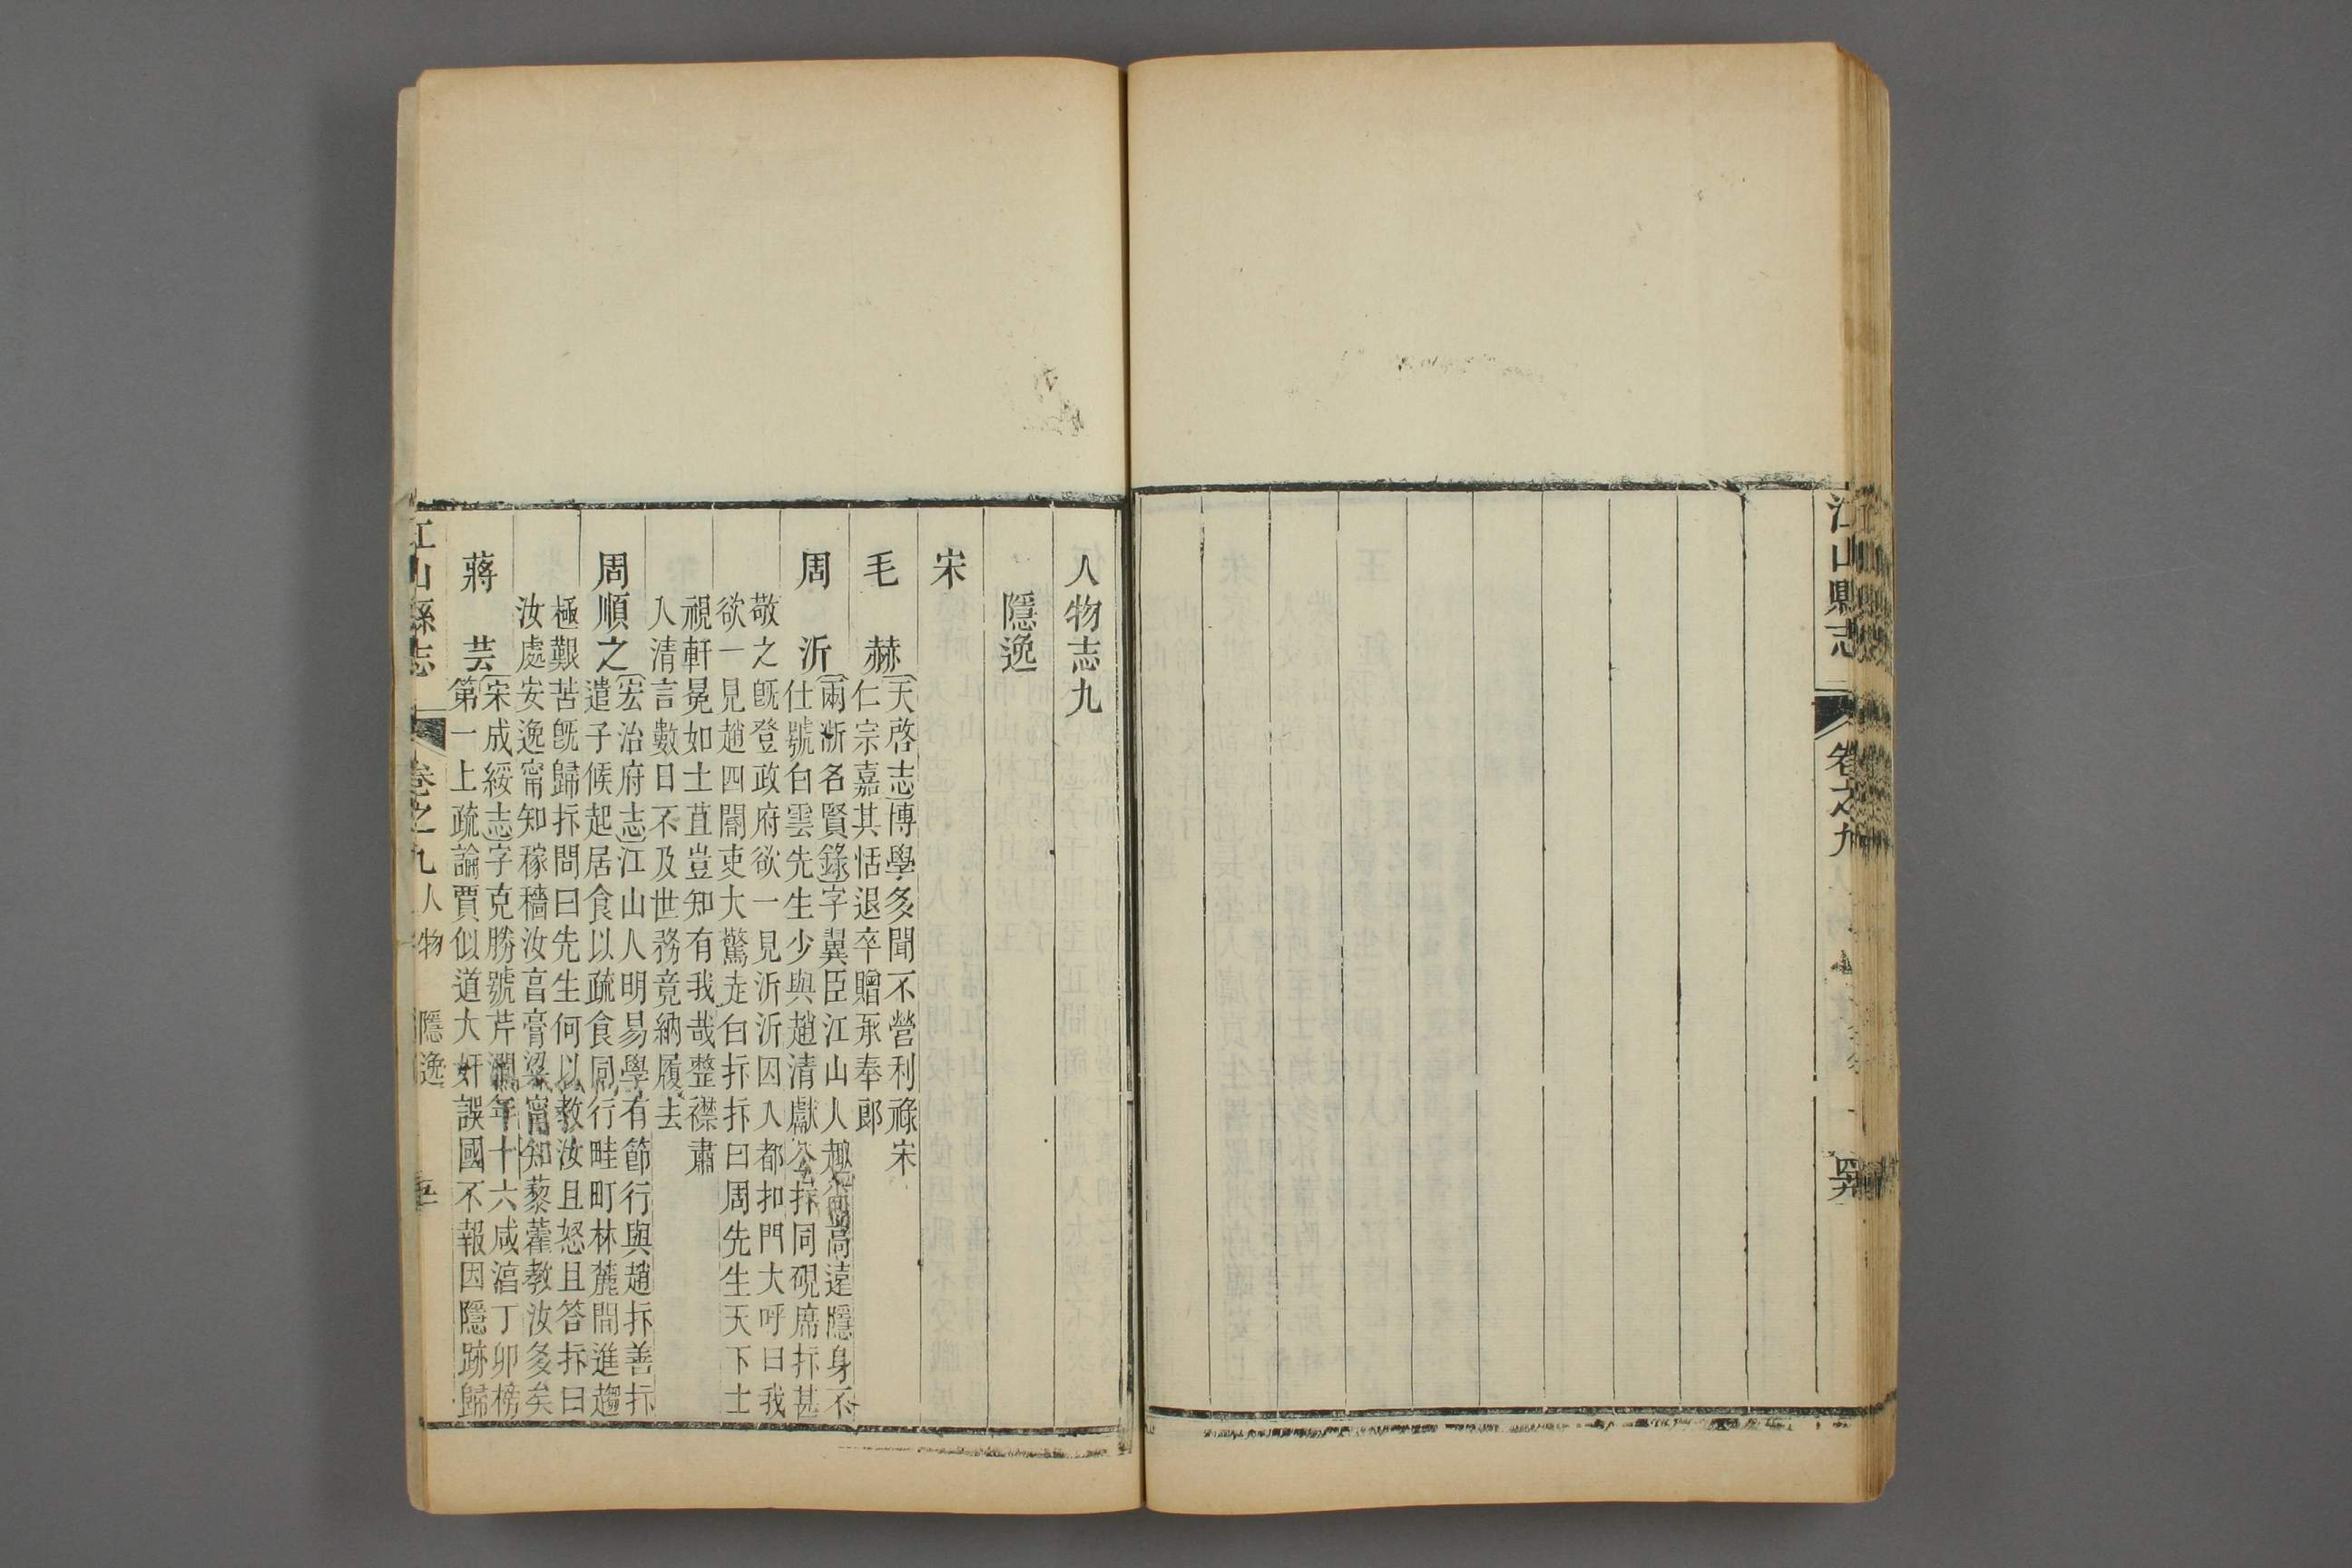 江山縣志
卷之九
人物志九
隱逸
宋
毛赫
天啓志博學多聞不營利祿宋
仁宗嘉其恬退卒贈承奉郎
周沂
兩浙名賢錄字翼臣江山人趣高遠隱身不
仕號白雲先生少與趙清獻公抃同硯席抃甚
敬之旣登政府欲一見沂沂因入都扣門大呼曰我
欲一見趙四閽吏大驚走白抃抃曰周先生天下士
視軒冕如土苴豈知有我哉整襟肅
入清言數日不及世務竟納履去
周順之
宏治府志江山人明易學有節行與趙抃善抃
遣子候起居食以疏食同行畦町林麓間進趨
極艱苦旣歸抃問曰先生何以教汝且怒且答抃曰
汝處安逸甯知稼穡汝亯膏粱甯知藜藿教汝多矣
蔣芸
宋成綏志字克勝號芹澗年十六咸淳丁卯榜
第一上疏論賈似道大奸誤國不報因隱跡歸
江山縣志
卷之九人物
隱逸